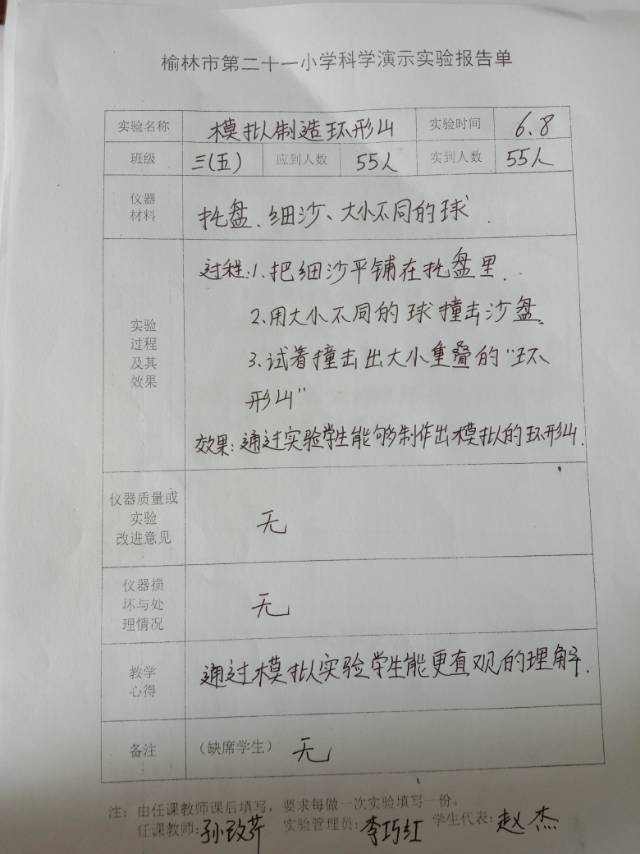 榆林市第二十一小学科学演示实验报告单
实验名称 模拟制造环形山 实验时间 6.8
班级 三(五) 应到人数 55人 实到人数 55人
仪器
材料
托盘、细沙、大小不同的球
实验
过程
及其
效果
过程:1.把细沙平铺在托盘里.
2.用大小不同的球撞击沙盘
3.试着撞击出大小重叠的“环
形山”
效果:通过实验学生能够制作出模拟的环形山.
仪器质量或
实验
改进意见
无
仪器损
坏与处
理情况
无
教学
心得
通过模拟实验学生能更直观的理解.
备注 (缺席学生) 无
注:由任课教师课后填写,要求每做一次实验填写一份。
任课教师:孙改芹 实验管理员:李巧红 学生代表:赵杰